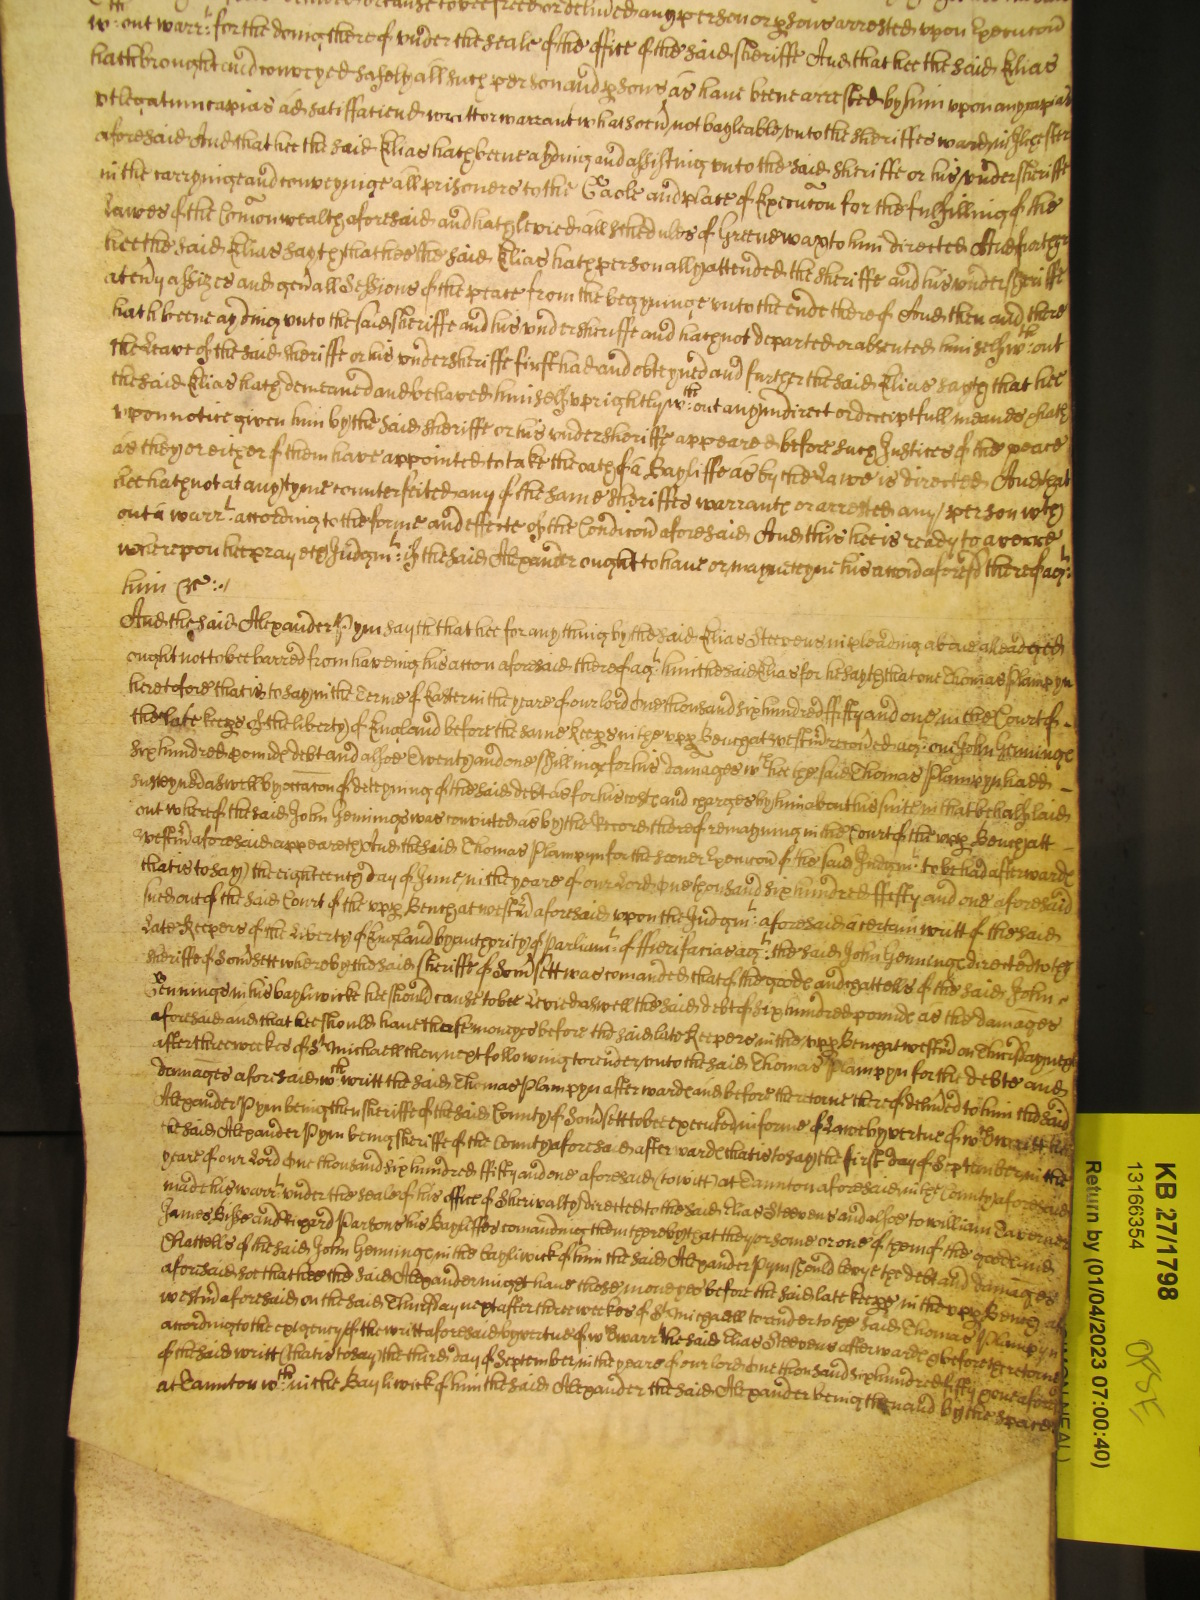 w:th out warr:t for the doing thereof under the seale of the office of the said Sheriffe And that hee the said Elias
hath brought and conveyed safely all such person and psons as have beene arrested by him upon any capias
utlegatum capias ad satisfaciend writt or warrant whatsoeu not bayleable unto the sheriffes ward in Ilchester
aforesaid And that hee the said Elias hath beene ayding and assisting unto the said sheriffe or his undersheriffe
in the carryinge and conveyinge all prisoners to the Gaole and place of Execucon for the fulfilling of the
Lawes of the Comonwealth aforesaid and hath levied all schedules of Greenewax to him directed And further
hee the said Elias sayth that hee the said Elias hath personally attended the sheriffe and his undersheriffe
at eny assizes and genall Sessions of the peace from the begynninge unto the ende thereof And then and there
hath beene ayding unto the said sheriffe and his undersheriffe and hath not departed or absented himself w:th out
the leave of the said sheriffe or his undersheriffe first had and obteyned and further the said Elias sayth that hee
the said Elias hath demeaned and behaved himself uprightly w:th out any indirect or deceiptfull meanes & hath
upon notice given him by the said sheriffe or his undersheriffe appeared before such Justices of the peace
as they or either of them have appointed to take the oath of a Bayliffe as by the Lawe is directed And that
hee hath not at any tyme counterfeited any of the same sheriffes warrants or arrested any person w:th
out a warr:t according to the forme and effecte of the Condicon aforesaid And this hee is ready to averre
whereupon hee prayeth Judgm:t if the said Alexander ought to have or mayneteyne his accon aforesd thereof ag:t
him &c:
And the said Alexander Pym sayth that hee for any thing by the said Elias Steevens in pleading above alleadged
ought not to bee barred from haveing his accon aforesaid thereof ag:t him the said Elias for he sayth that one Thomas Plampyn
heretofore that is to say in the Terme of Easter in the yeare of our lord One thousand six hundred fiffty and one in the Court of
the late keeps of the liberty of England before the same Keeps in the upp Bench at westm recovered ag:t one John Hennings
six hundred pounds debt and alsoe Twenty and one shillings for his damages w:ch hee the said Thomas Plampyn hadd
susteyned aswell by occacon of deteyning of the said debt as for his costs and charges by him about his suite in that behalf laid
out whereof the said John Hennings was convicted as by the Record thereof remayning in the Court of the upp Bench att
westm aforesaid appeareth And the said Thomas Plampyn for the sooner execucon of the said Judgm:t to be had afterwards
that is to say the eighteenth day of June in the yeare of our Lord One thousand six hundred fiffty and one aforesaid
sued out of the said Court of the upp Bench at westm aforesaid upon the Judgm:t aforesaid a certain writt of the said
Late Keepers of the Liberty of England by authority of Parliam:t of ffieri facias ag:t the said John Hennings directed to the
Sheriffe of Somsett whereby the said Sheriffe of Somsett was comanded that of the goods and chattells of the said John
Hennings in his bayliwicke hee should cause to bee Levied aswell the said debt of six hundred pounds as the damages
aforesaid and that hee should have those moneys before the said late Keepers in the upp Bench at westm on Thursday next
after three weekes of St Michaell then next following to render unto the said Thomas Plampyn for the debts and
damages aforesaid w:ch writt the said Thomas Plampyn afterwards and before the retorne thereof delived to him the said
Alexander Pym being then sheriffe of the said County of Somsett to bee executed in forme of Lawe by vertue of w:ch writt
the said Alexander Pym being sheriffe of the County aforesaid afterwards that is to say the first day of September in the
yeare of our Lord One thousand six hundred ffifty and one aforesaid (to witt) at Taunton aforesaid in the County aforesaid
made his warr:t under the seale of his office of Sherivalty directed to the said Elias Steevens and alsoe to william Taverner
James Bisse and Parsons his Bayliffes comanding them thereby that they or some or one of them of the goods and
Chattells of the said John Hennings in the bayliwick of him the said Alexander Pym should levye the debt and damages
aforesaid soe that hee the said Alexander might have these moneyes before the said late keeps in the upp Bench at
westm aforesaid on the said Thursday next after three weekes of St Michaell to render to the said Thomas Plampyn
according to the exigency of the writt aforesaid by vertue of w:ch warr:t the said Elias Steevens afterwards & before the retorne
of the said writt (that is to say) the third day of September in the yeare of our lord One thousand six hundred fiffty & one afores
at Taunton w:th in the Bayliwick of him the said Alexander the said Alexander being then and by the space
KB 27/1798
13166354
Return by (01/04/2023 07:00:40)